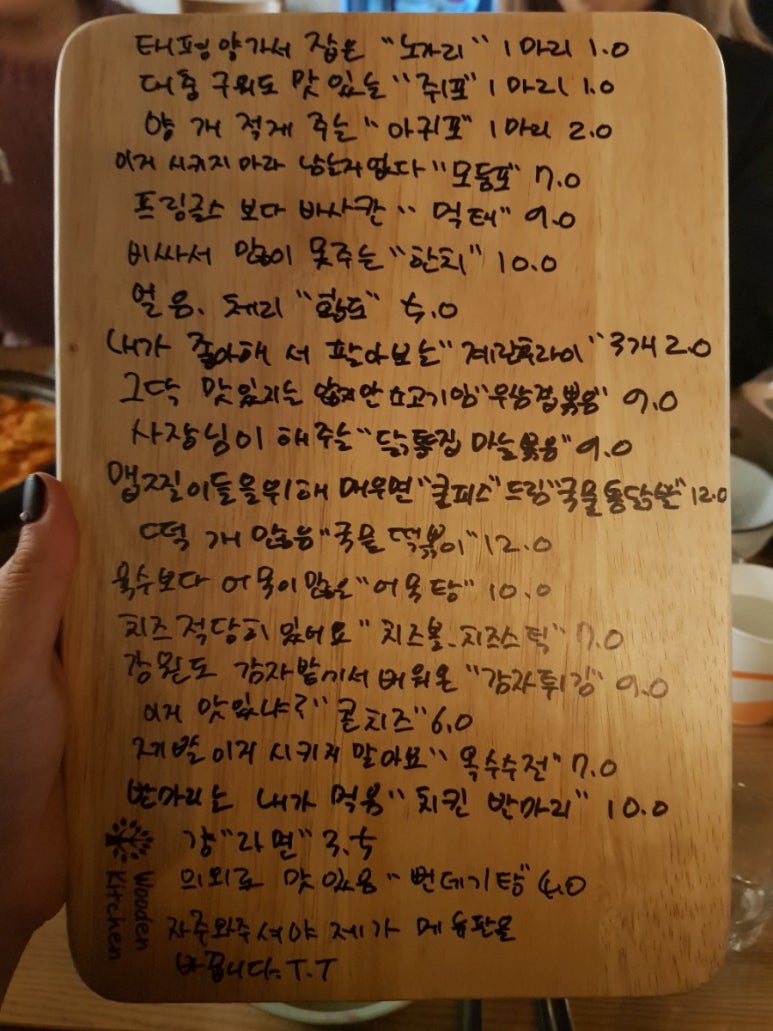 태평양가서 잡은 "노가리" 1마리 1.0
대충 구워도 맛있는 "쥐포" 1마리 1.0
양 개 적게 주는 "아귀포" 1마리 2.0
이거 시키지 마라 남는거 없다 "모둠포" 7.0
프링글스 보다 바사칸 "먹태" 9.0
비싸서 많이 못주는 "한치" 10.0
얼음. 체리 "황도" 5.0
내가 좋아해 서 팔아보는 "계란후라이" 3개 2.0
그닥 맛있지는 않지만 소고기임 "우삼겹볶음" 9.0
사장님이 해주는 "닭똥집 마늘볶음" 9.0
맵찔이들을위해 매우면 "쿨피스" 드림 "국물통닭발" 12.0
떡 개 많음 "국물 떡볶이" 12.0
육수보다 어묵이 많은 "어묵탕" 10.0
치즈 적당히 있어요 "치즈볼.치즈스틱" 7.0
강원도 감자밭가서 배워온 "감자튀김" 9.0
이거 맛있냐? "콘치즈" 6.0
제발 이거 시키지 말아요 "옥수수전" 7.0
반마리는 내가 먹음 "치킨 반마리" 10.0
걍 "라면" 3.5
의외로 맛있음 "번데기탕" 6.0
자주와주셔야 제가 메뉴판을
바꿉니다. T.T
Wooden
Kitchen